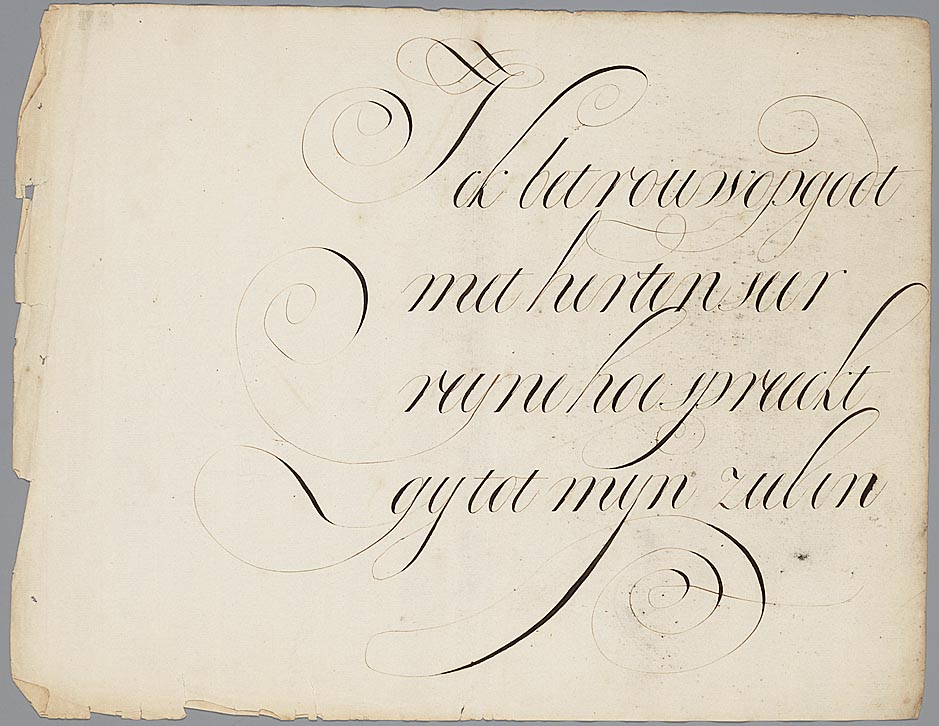 Ick betrouw op godt
met herten seer
reyne hoe spreeckt
gy tot myn zielen